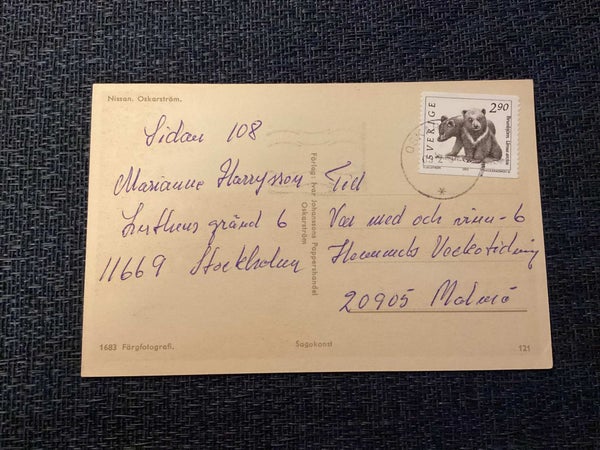 Nissan. Oskarström.
Sidan 108
Marianne Harrysson
gränd 6
11669 Stockholm
Förlag: Ivar Johanssons Pappershandel
Oskarström
Till
Var med och vinn - 6
Hemmets Veckotidning
20905 Malmö
SVERIGE
2.90
Brunbjörn Ursus arctos
1683 Färgfotografi.
Sagokonst
121